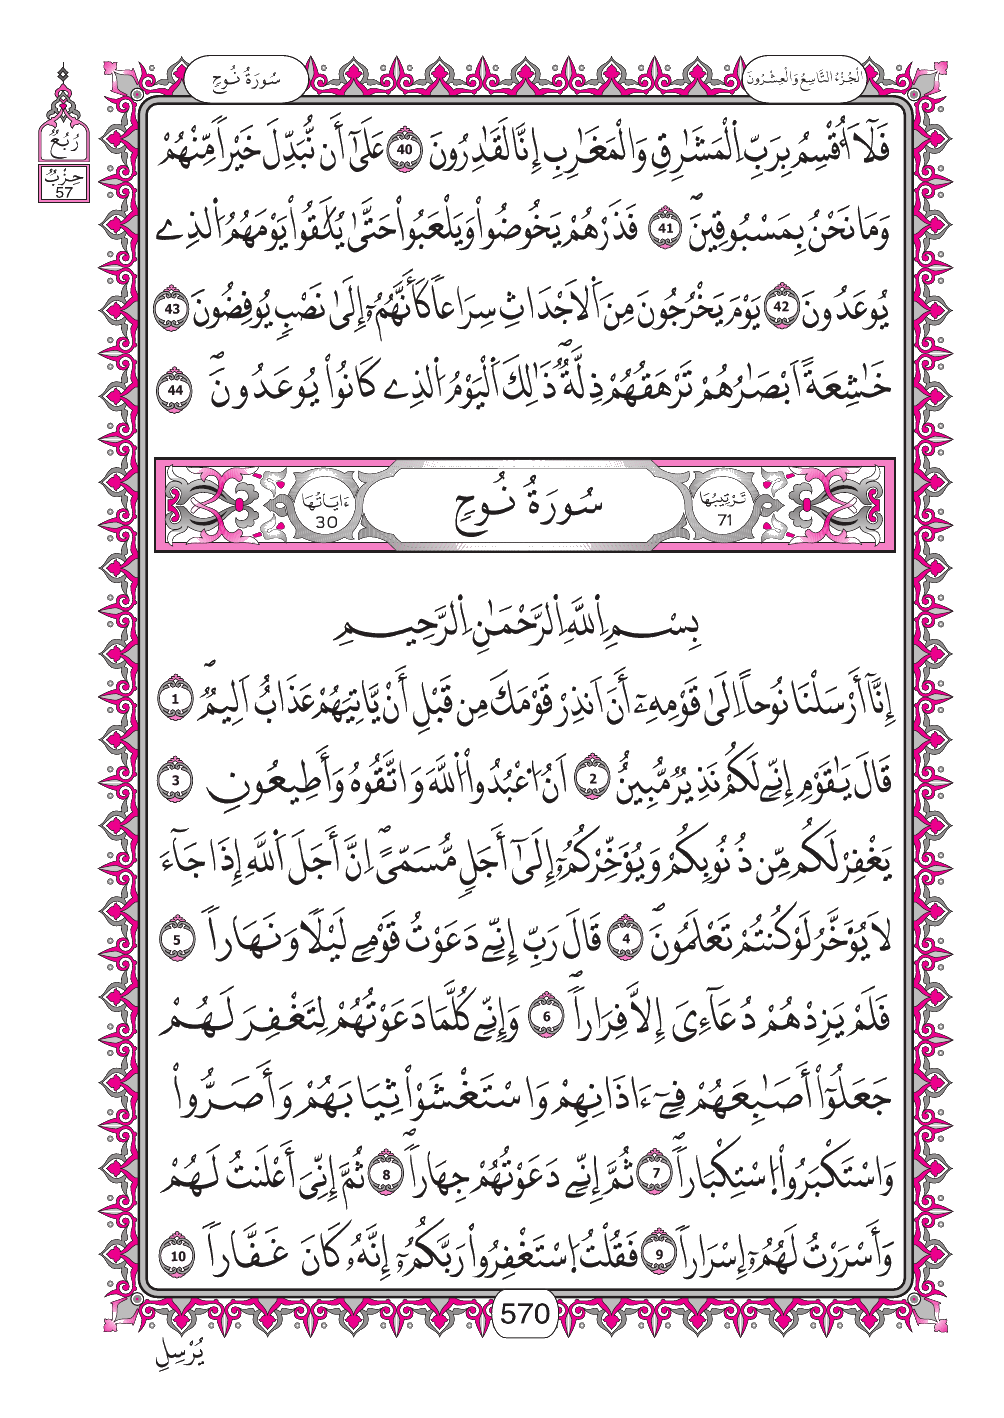 الْجُزْءُ التَّاسِعُ وَالْعِشْرُونَ
سُورَةُ نُوحٍ
رُبُعُ
حِزْبُ
57
فَلَآ أُقْسِمُ بِرَبِّ اِ۬لْمَشَٰرِقِ وَالْمَغَٰرِبِ إِنَّا لَقَٰدِرُونَ 40 عَلَىٰٓ أَن نُّبَدِّلَ خَيْراٗ مِّنْهُمْ
وَمَا نَحْنُ بِمَسْبُوقِينَۖ 41 فَذَرْهُمْ يَخُوضُواْ وَيَلْعَبُواْ حَتَّىٰ يُلَٰقُواْ يَوْمَهُمُ اُ۬لذِے
يُوعَدُونَ 42 يَوْمَ يَخْرُجُونَ مِنَ اَ۬لَاجْدَاثِ سِرَاعاٗ كَأَنَّهُمُۥٓ إِلَىٰ نَصْبٖ يُوفِضُونَ 43
خَٰشِعَةً اَبْصَٰرُهُمْ تَرْهَقُهُمْ ذِلَّةٞۖ ذَٰلِكَ اَ۬لْيَوْمُ اُ۬لذِے كَانُواْ يُوعَدُونَۖ 44
تَرْتِيبُهَا 71
سُورَةُ نُوحٍ
ءَايَاتُهَا 30
بِسْمِ اِ۬للَّهِ اِ۬لرَّحْمَٰنِ اِ۬لرَّحِيمِ
إِنَّآ أَرْسَلْنَا نُوحاً اِلَىٰ قَوْمِهِۦٓ أَنَ اَنذِرْ قَوْمَكَ مِن قَبْلِ أَنْ يَّاتِيَهُمْ عَذَابٌ اَلِيمٞۖ 1
قَالَ يَٰقَوْمِ إِنِّے لَكُمْ نَذِيرٞ مُّبِينٌ 2 اَنُ اُ۟عْبُدُواْ اُ۬للَّهَ وَاتَّقُوهُ وَأَطِيعُونِ 3
يَغْفِرْ لَكُم مِّن ذُنُوبِكُمْ وَيُؤَخِّرْكُمُۥٓ إِلَىٰٓ أَجَلٖ مُّسَمّىًۖ اِنَّ أَجَلَ اَ۬للَّهِ إِذَا جَآءَ
لَا يُؤَخَّرُ لَوْ كُنتُمْ تَعْلَمُونَۖ 4 قَالَ رَبِّ إِنِّے دَعَوْتُ قَوْمِے لَيْلاٗ وَنَهَاراٗ 5
فَلَمْ يَزِدْهُمْ دُعَآءِيَ إِلَّا فِرَاراٗۖ 6 وَإِنِّے كُلَّمَا دَعَوْتُهُمْ لِتَغْفِرَ لَهُمْ
جَعَلُوٓاْ أَصَٰبِعَهُمْ فِےٓ ءَاذَانِهِمْ وَاسْتَغْشَوْاْ ثِيَابَهُمْ وَأَصَرُّواْ
وَاسْتَكْبَرُواْ اُ۪سْتِكْبَاراٗۖ 7 ثُمَّ إِنِّے دَعَوْتُهُمْ جِهَاراٗۖ 8 ثُمَّ إِنِّيَ أَعْلَنتُ لَهُمْ
وَأَسْرَرْتُ لَهُمُۥٓ إِسْرَاراٗ 9 فَقُلْتُ اُ۪سْتَغْفِرُواْ رَبَّكُمُۥٓ إِنَّهُۥ كَانَ غَفَّاراٗ 10
570
يُرْسِلِ